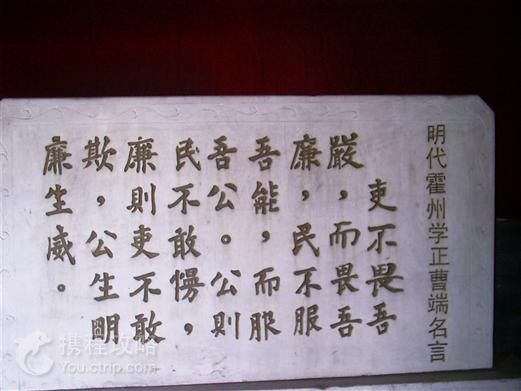 明代霍州学正曹端名言
吏不畏吾
嚴，而畏吾
廉，民不服
吾能，而服
吾公。公則
民不敢慢，
廉則吏不敢
欺，公生明
廉生威。
携程攻略
You.ctrip.com